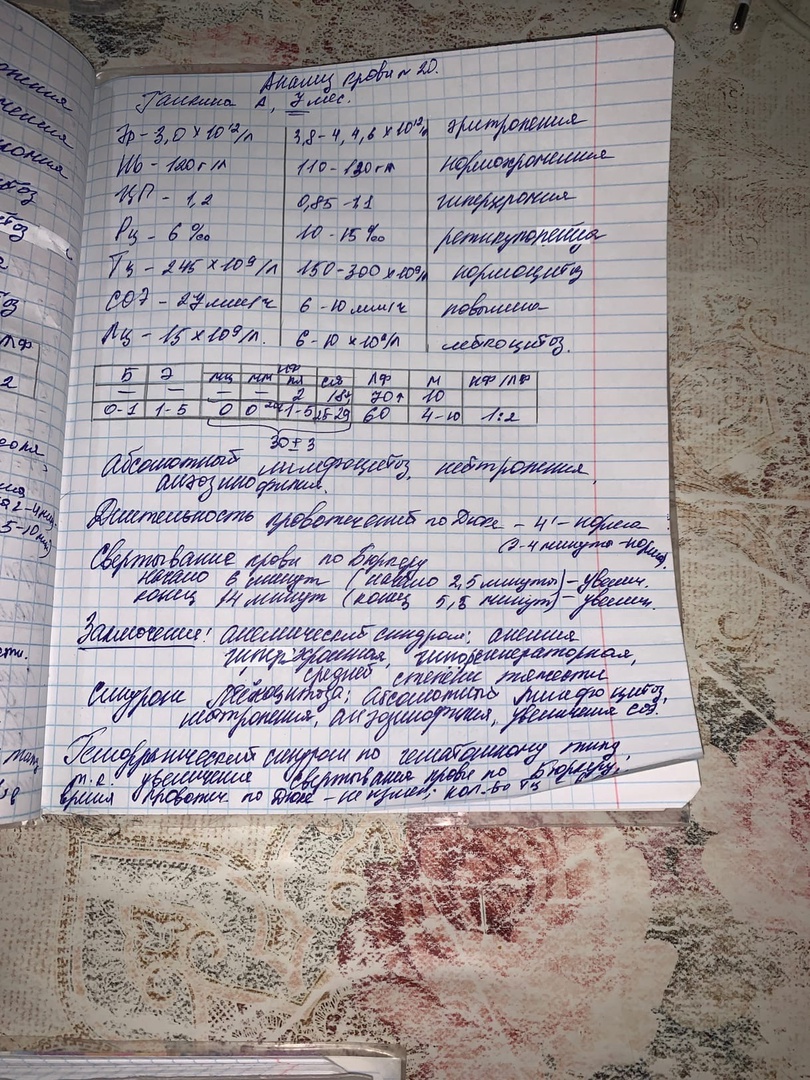 Анализ крови № 20.
Галкина А, 7 мес.
Эр – 3,0 × 10¹²/л 3,8 – 4,4,6 × 10¹²/л эритропения
Hb – 120 г/л 110 – 120 г/л нормохромения
ЦП – 1,2 0,85 – 1,1 гиперхромия
Рц – 6 ‰ 10 – 15 ‰ ретикулопения
Тц – 245 × 10⁹/л 150 – 300 × 10⁹/л нормоцитоз
СОЭ – 27 мм/ч 6 – 10 мм/ч повышена
Лц – 15 × 10⁹/л. 6 – 10 × 10⁹/л лейкоцитоз.
НФ
Б Э мц мм пл с/я ЛФ М НФ/ЛФ
– – – – 2 18↓ 70↑ 10
0-1 1-5 0 0 1-5 25-29 60 4-10 1:2
30±3
Абсолютный лимфоцитоз, нейтропения,
анэозинофилия.
Длительность кровотечений по Дюке – 4' – норма
(2-4 минуты – норма).
Свертывание крови по Бюркеру
начало 6 минут (начало 2,5 минуты) – увелич.
конец 14 минут (конец 5,5 минут) – увелич.
Заключение: анемический синдром: анемия
гиперхромная, гипорегенераторная,
средней степени тяжести
Синдром лейкоцитоза: абсолютный лимфоцитоз,
нейтропения, анэозинофилия, увеличения СОЭ.
Геморрагический синдром по гематомному типу,
т.к. увеличения свертывания крови по Бюркеру,
время кровотеч по Дюке – не измен; кол-во Тц